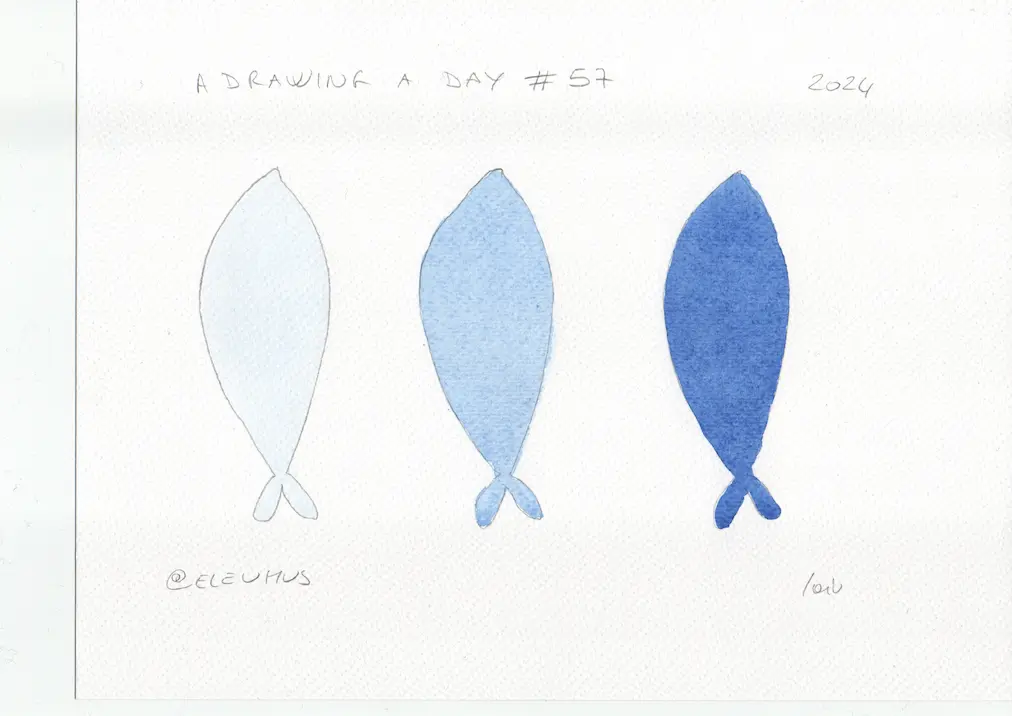 A DRAWING A DAY #57 2024
@ELEUMUS